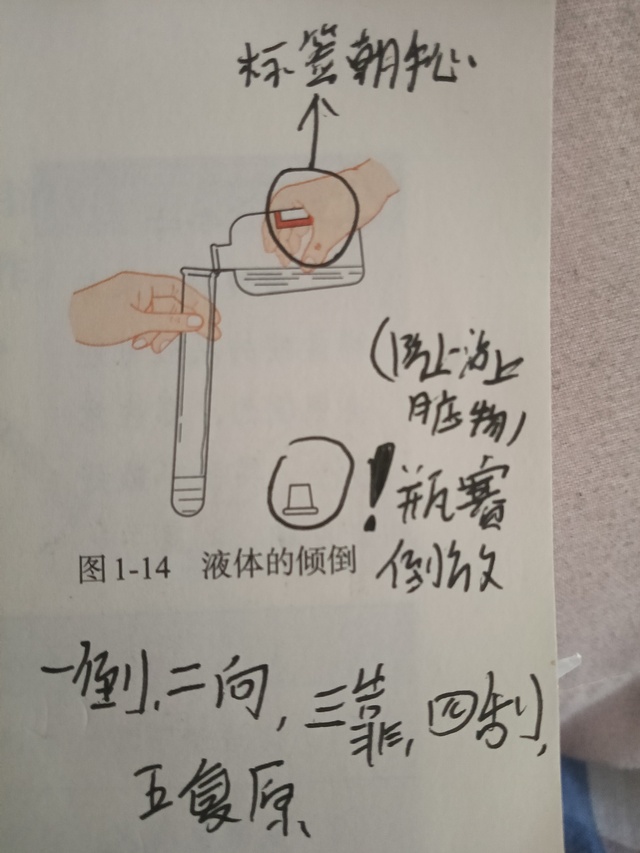 标签朝手心
(防止沾上
脏物)
瓶塞
倒放
图1-14 液体的倾倒
一倒,二向,三靠,四制,
五复原